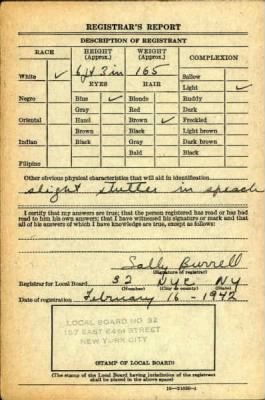 REGISTRAR'S REPORT
DESCRIPTION OF REGISTRANT
RACE HEIGHT (Approx.) WEIGHT (Approx.) COMPLEXION
White ✓ 6ft 3in 165 Sallow
EYES HAIR Light ✓
Negro Blue ✓ Blonde Ruddy
Gray Red Dark
Oriental Hazel Brown ✓ Freckled
Brown Black Light brown
Indian Black Gray Dark brown
Bald Black
Filipino
Other obvious physical characteristics that will aid in identification
slight stutter in speach
I certify that my answers are true; that the person registered has read or has had
read to him his own answers; that I have witnessed his signature or mark and that
all of his answers of which I have knowledge are true, except as follows:
Sally Burrell
(Signature of registrar)
Registrar for Local Board 32 NYC NY
(Number) (City or county) (State)
Date of registration February 16 - 1942
LOCAL BOARD NO. 32
EAST 64TH STREET
NEW YORK CITY
(STAMP OF LOCAL BOARD)
(The stamp of the Local Board having jurisdiction of the registrant
shall be placed in the above space)